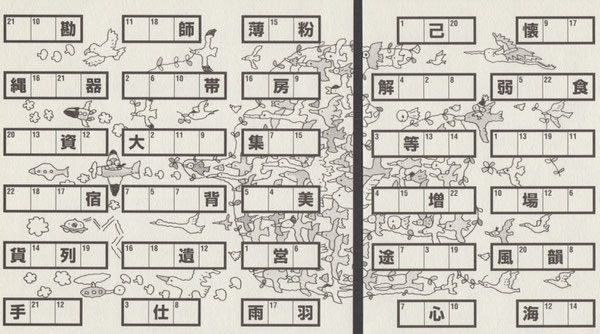 21 10 勘 11 18 師 薄 15 粉 1 己 20 懐 9 17
縄 16 21 器 2 6 10 帯 16 房 9 解 4 2 8 弱 5 22 食
20 13 資 12 大 2 11 9 集 7 15 3 等 13 14 1 13 19 11
22 18 17 宿 7 5 5 背 5 4 美 4 増 15 22 10 場 12 6
貨 14 列 19 16 18 遺 12 1 営 6 途 7 3 19 風 20 韻 8
手 21 12 3 仕 8 雨 17 羽 7 心 10 海 12 14